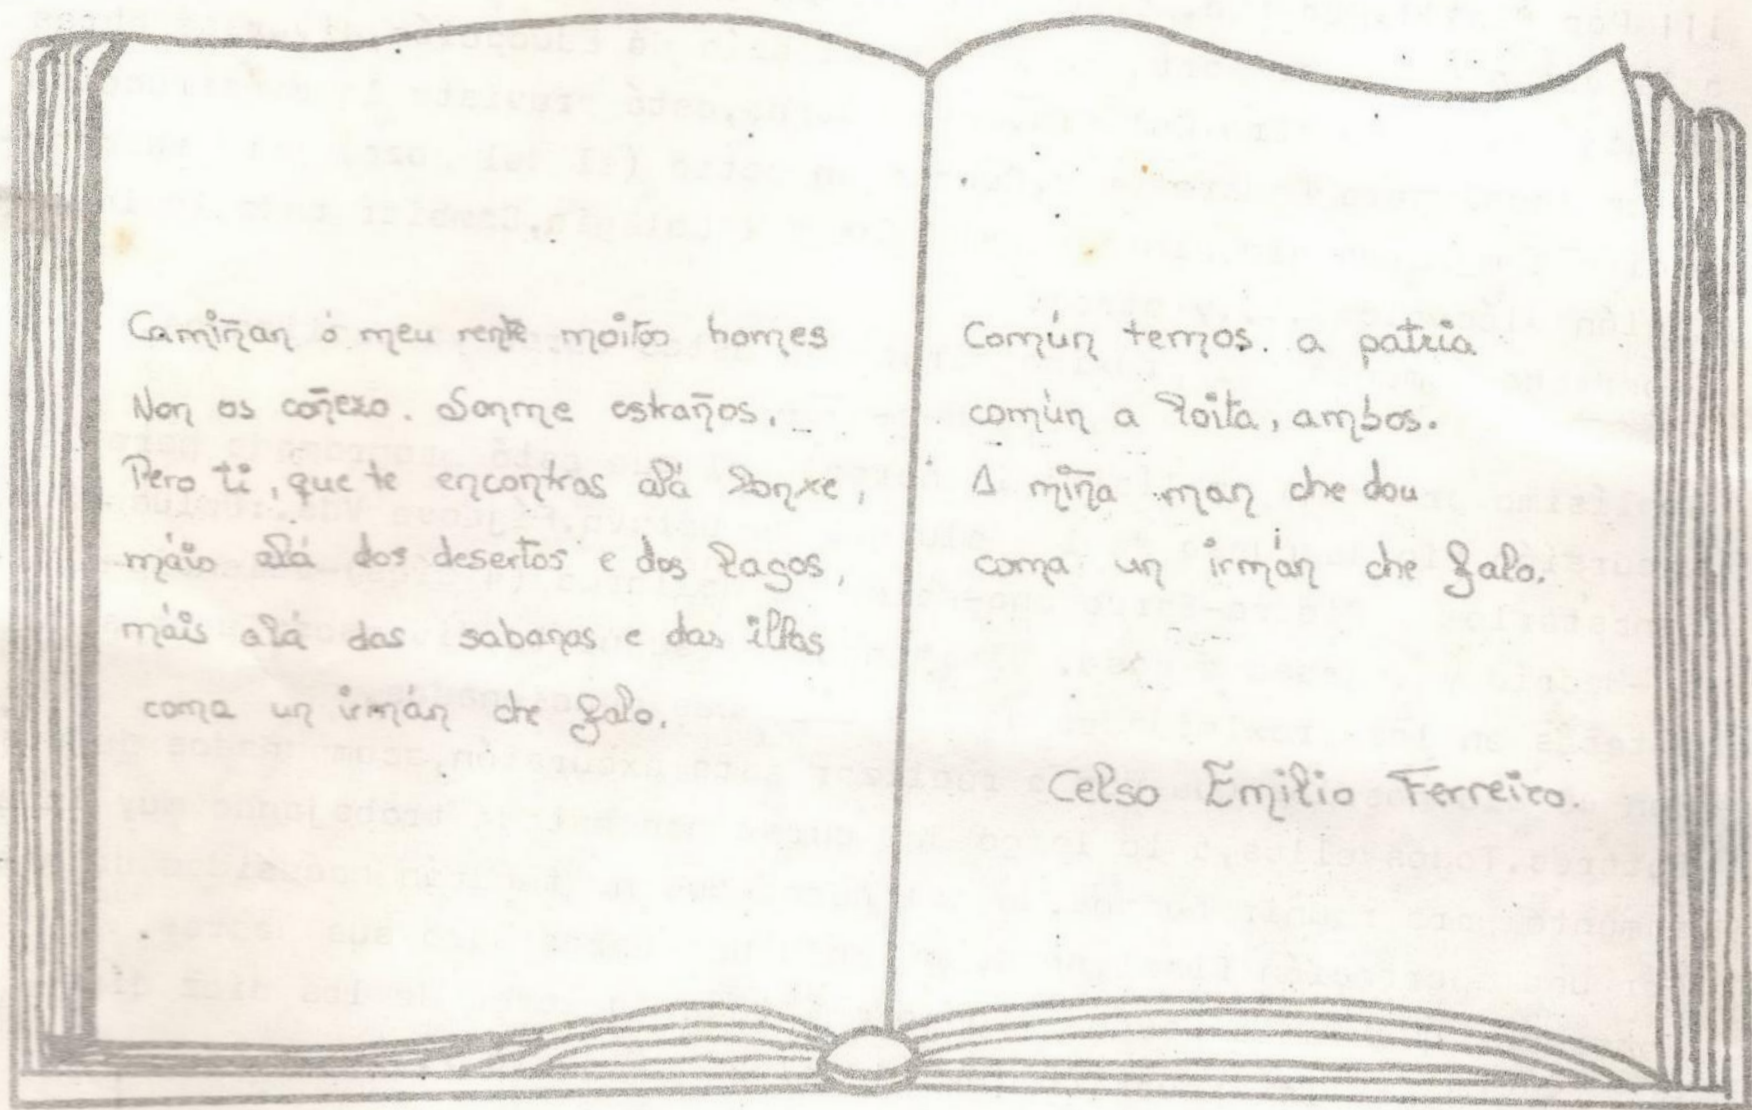 Camiñan ó meu rente moitos homes
Non os coñezo. Sonme estraños.
Pero ti, que te encontras alá lonxe,
máis alá dos desertos e dos lagos,
máis alá das sabanas e das illas
coma un irmán che falo.
Común temos. a patria
común a loita, ambos.
A miña man che dou
coma un irmán che falo.
Celso Emilio Ferreiro.